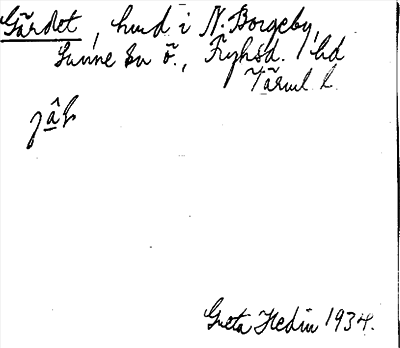 Gärdet, hmd i N. Borgeby,
Sunne Sn ö., Fryksd. hd
Värml. l.
Greta Hedin 1934.